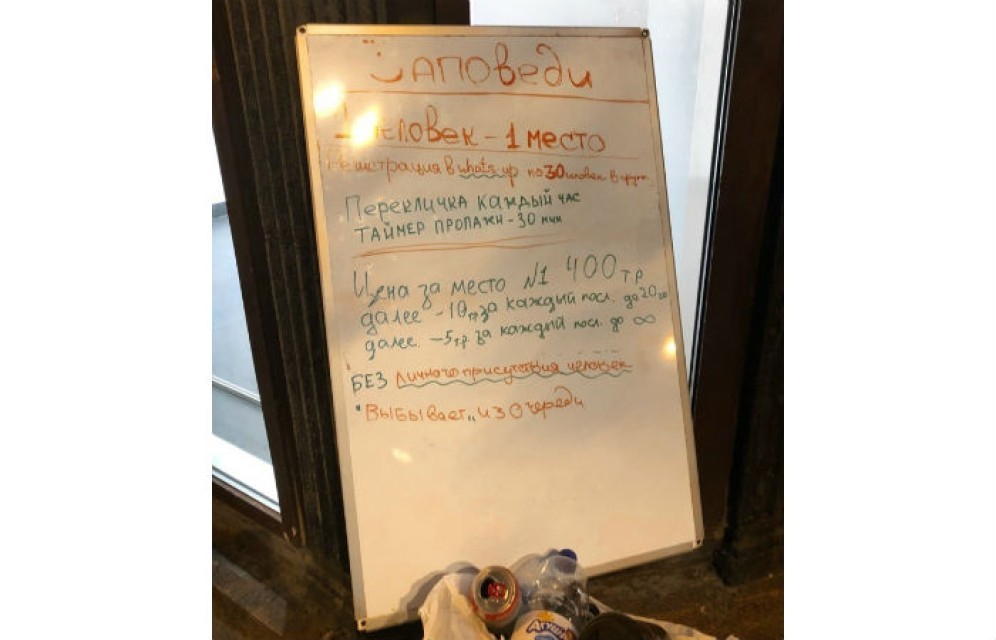 ЗАПОВЕДИ
1 человек - 1 место
Регистрация в whats up по 30 человек в групп.
Перекличка каждый час
Таймер пропажи - 30 мин
Цена за место №1 400 т.р
далее -10т.р за каждый посл. до 20го
далее -5т.р. за каждый посл. до ∞
БЕЗ личного присутствия человек
"Выбывает" из очереди
Агуша